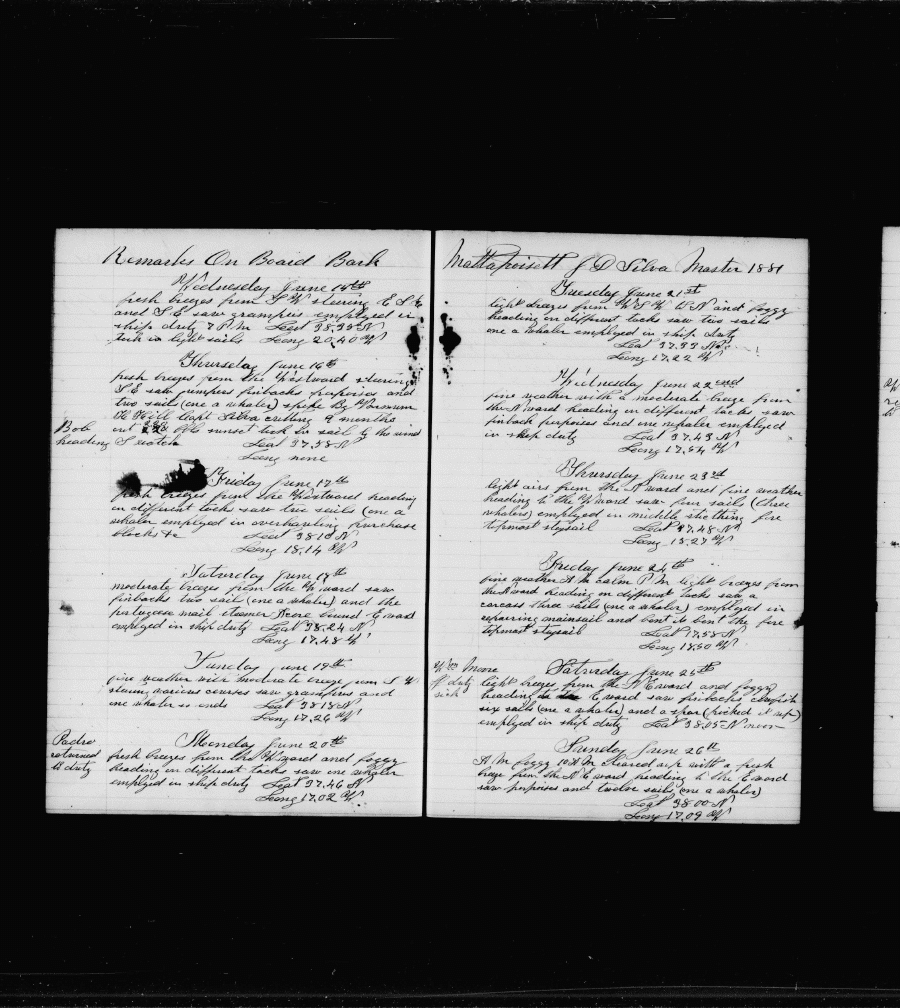 Remarks On Board Bark
Wednesday June 15th
fresh breezes from S W steering E S E
and S E saw grampus employed in
ship duty 7 P. M. Leat 38.35 N
took in light sails Long 20.40 W
Thursday June 16th
fresh breezes from the Westward steering
S E saw jumpers finbacks porpoises and
two sails (one a whaler) spoke Bg
Capt Silva cruising 9 months
out Bbls sunset took in sail to the wind
heading S watch Leat 37.58 N
Long none
Bob
Friday June 17th
fresh breezes from the Westward heading
on different tacks saw two sails (one a
whaler employed in overhauling purchase
blocks &c Leat 38.10 N
Long 18.14 W
Saturday June 18th
moderate breezes from the W ward saw
finbacks two sail (one a whaler) and the
portugese mail steamer bound E ward
employed in ship duty Leat 38.24 N
Long 17.48 W
Sunday June 19th
fine weather with moderate breeze from S W
steering various courses saw grampus and
one whaler so ends Leat 38.18 N
Long 17.26 W
Padro
returned
to duty
Monday June 20th
fresh breezes from the W ward and foggy
heading on different tacks saw one whaler
employed in ship duty Leat 37.46 N
Long 17.02 W
Mattapoisett J D Silva Master 1881
Tuesday June 21st
light breezes from W S W to N and foggy
heading on different tacks saw two sails
one a whaler employed in ship duty
Leat 37.33 N
Long 17.22 W
Wednesday June 22nd
fine weather with a moderate breeze from
the N ward heading on different tacks saw
finback porpoises and one whaler employed
in ship duty Leat 37.43 N
Long 17.54 W
Thursday June 23rd
light airs from the N ward and fine weather
heading to the W ward saw four sails (three
whalers) employed in middle stiching fore
topmost staysail Leat 37.48 N
Long 18.27 W
Friday June 24th
fine weather A M calm P. M. light breezes from
the N ward heading on different tacks saw a
carcass three sails (one a whaler) employed in
repairing mainsail and bent it bent the fore
topmost staysail Leat 37.58 N
Long 18.50 W
Wm Moore
off duty
sick
Saturday June 25th
light breezes from the N E ward and foggy
heading to the E ward saw finbacks
six sails (one a whaler) and a spar (picked it up)
employed in ship duty Leat 38.05 N
Sunday June 26th
A. M. foggy 10 A M cleared up with a fresh
breeze from the N E ward heading to the E ward
saw porpoises and twelve sails (one a whaler)
Leat 38.00 N
Long 17.09 W